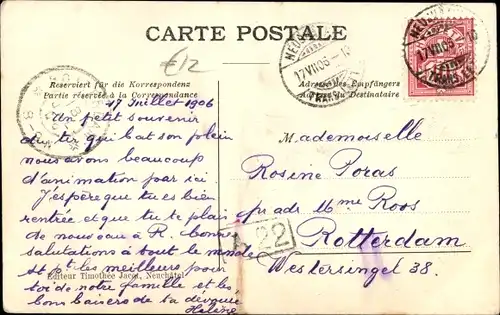 CARTE POSTALE
€12
NEUCHATEL
17 VII 06 - 10
TRANS. LET
NEUCHATEL
17 VII 06 - 10
TRANS. LET
Reserviert für die Korrespondenz
Partie réservée à la Correspondance
Adresse des Empfängers
Adresse du Destinataire
17 Juillet 1906
Un petit souvenir
du tir qui bat son plein
nous avons beaucoup
d'animation par ici
J'espère que tu es bien
rentrée et que tu te plais
de nouveau à R. bonnes
salutations à tout le monde
et p. les meilleurs pour
toi de notre famille et les
bons baisers de ta dévouée
Helène
Mademoiselle
Rosine Poras
adr. Mme Roos
Rotterdam
Westersingel 38.
22
Editeur Timothée Jacot, Neuchâtel